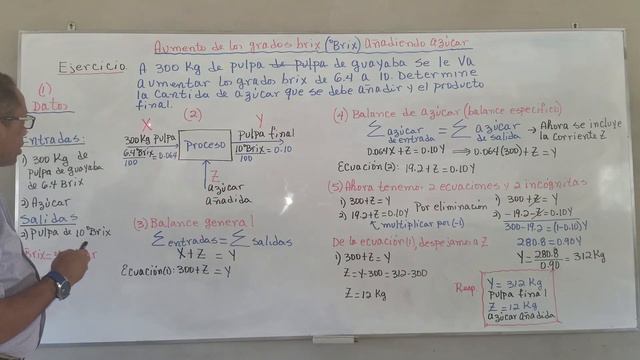 Aumento de los grados brix (°Brix) añadiendo azúcar
Ejercicio. A 300 Kg de pulpa de pulpa de guayaba se le va
aumentar los grados brix de 6.4 a 10. Determine
la cantida de azúcar que se debe añadir y el producto
final.
(1)
Datos
Entradas:
1) 300 Kg de
pulpa de guayaba
de 6.4 Brix
2) Azúcar
Salidas
2) Pulpa de 10°Brix
(2)
X
300 Kg pulpa
6.4°Brix = 0.064
100
Proceso
Y
Pulpa final
10°Brix = 0.10
100
Z
azúcar
añadida
(3) Balance general
Σ entradas = Σ salidas
X+Z = Y
Ecuación(1): 300+Z = Y
(4) Balance de azúcar (balance específico)
Σ azúcar de entrada = Σ azúcar de salida → Ahora se incluye
la corriente Z
0.064X+Z = 0.10Y ⟹ 0.064(300)+Z = Y
Ecuación (2): 19.2+Z = 0.10Y
(5) Ahora tenemos 2 ecuaciones y 2 incógnitas
1) 300+Z = Y
2) 19.2+Z = 0.10Y
multiplicar por (-1)
Por eliminación
1) 300+Z = Y
2) -19.2-Z = 0.10Y
300-19.2 = (1-0.10)Y
280.8 = 0.90Y
Y = 280.8 = 312 Kg
0.90
De la ecuación(1), despejamos a Z
1) 300+Z = Y
Z = Y-300 = 312-300
Z = 12 Kg
Resp.
Y = 312 Kg
Pulpa final
Z = 12 Kg
azúcar añadida